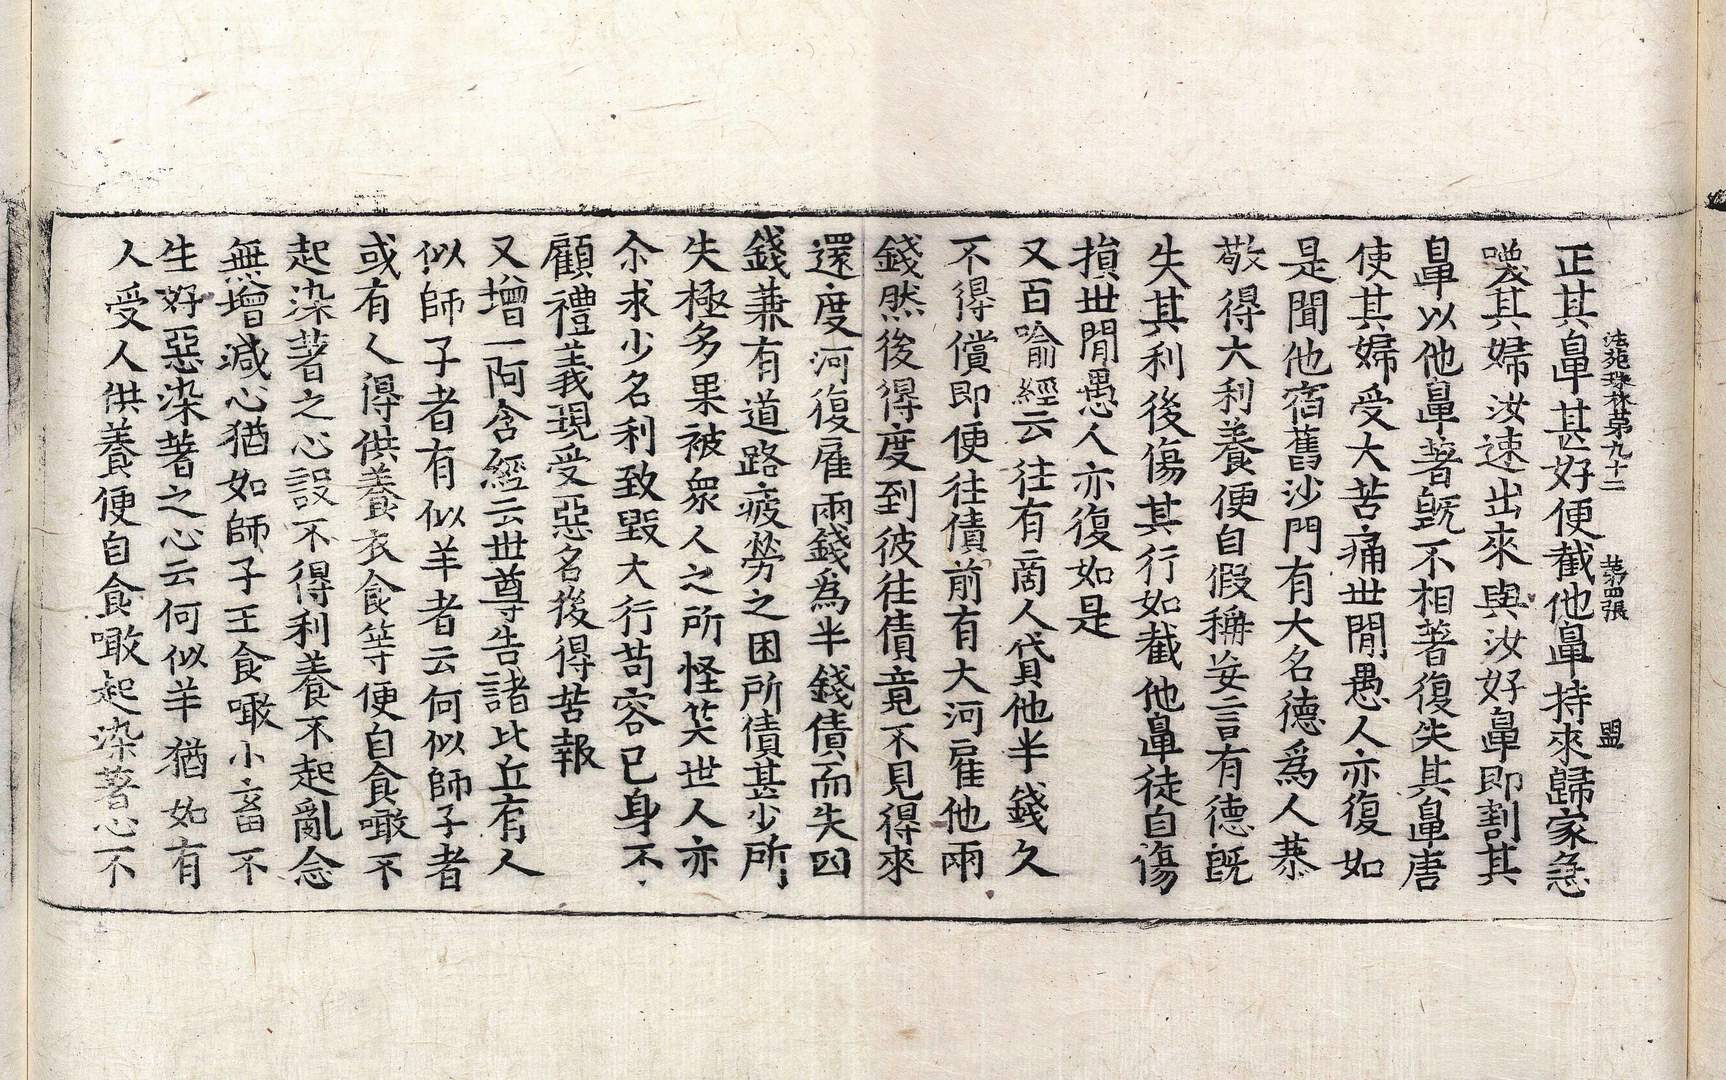 法苑珠林第九十二 第四張 盟
正其鼻甚好便截他鼻持來歸家急
喚其婦汝速出來與汝好鼻即割其
鼻以他鼻著既不相著復失其鼻唐
使其婦受大苦痛世間愚人亦復如
是聞他宿舊沙門有大名德為人恭
敬得大利養便自假稱妄言有德既
失其利後傷其行如截他鼻徒自傷
損世間愚人亦復如是
又百喻經云往有商人貸他半錢久
不得償即便往債前有大河雇他兩
錢然後得度到彼往債竟不見得來
還度河復雇兩錢為半錢債而失四
錢兼有道路疲勞之困所債甚少所
失極多果被衆人之所怪笑世人亦
尒求少名利致毀大行苟容己身不
顧禮義現受惡名後得苦報
又增一阿含經云世尊告諸比丘有人
似師子者有似羊者云何似師子者
或有人得供養衣食等便自食噉不
起染著之心設不得利養不起亂念
無增減心猶如師子王食噉小畜不
生好惡染著之心云何似羊猶如有
人受人供養便自食噉起染著心不